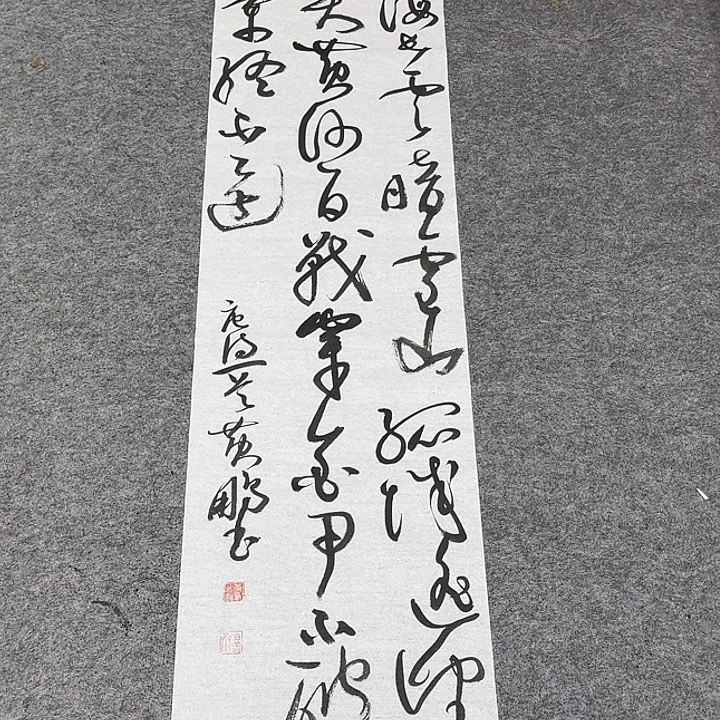 海长云暗雪山孤城遥望
关黄沙百战穿金甲不破
兰终不还
唐诗一首黄鹏书